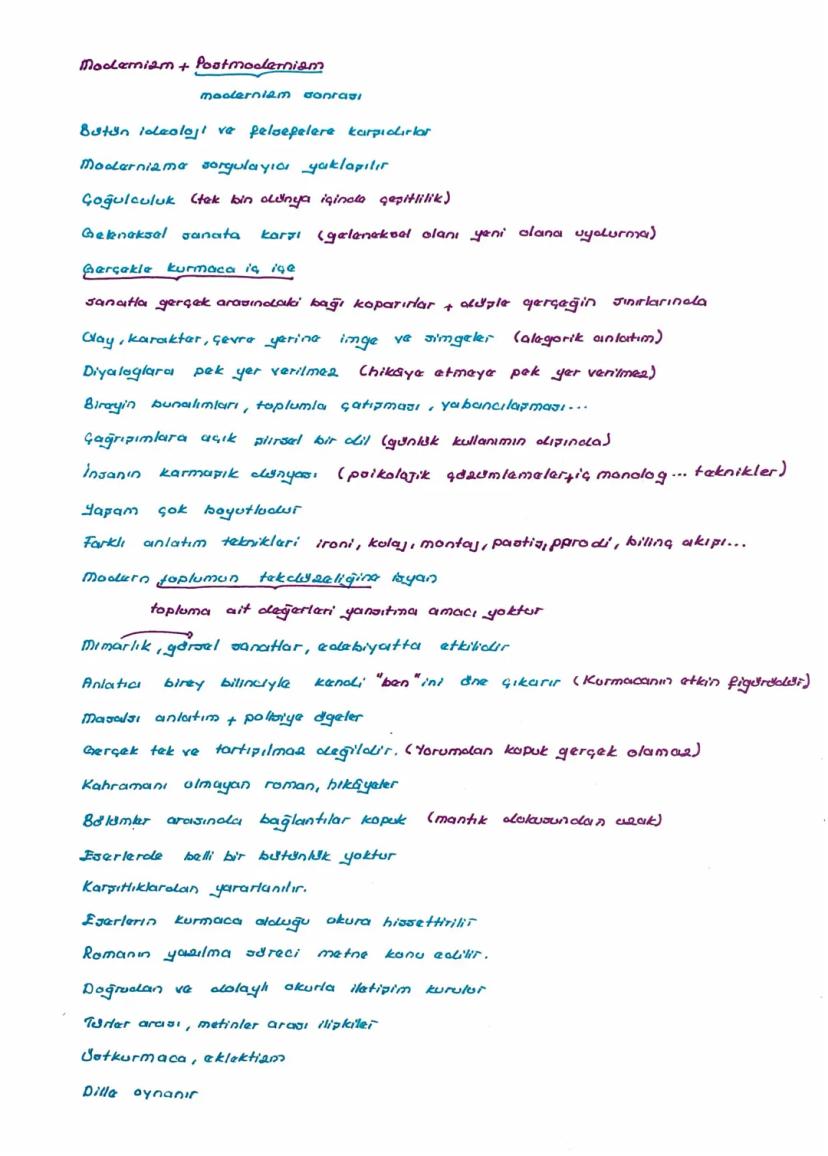 Modernizm + Postmodernizm
modernizm sonrası
Bütün ideoloji ve felsefelere karşıdırlar
Modernizme sorgulayıcı yaklaşılır
Çoğulculuk (tek bin dünya içinde çeşitlilik)
Geleneksel sanata karşı (geleneksel olanı yeni olana uydurma)
Gerçekle kurmaca iç içe
sanatla gerçek arasındaki bağı koparırlar + düşle gerçeğin sınırlarında
Olay, karakter, çevre yerine imge ve simgeler (alegorik anlatım)
Diyaloglara pek yer verilmez (hikâye etmeye pek yer verilmez)
Bireyin bunalımları, toplumla çatışması, yabancılaşması...
Çağrışımlara açık şiirsel bir dil (günlük kullanımın dışında)
İnsanın karmaşık dünyası (psikolojik çözümlemeler, iç monolog... teknikler)
Yaşam çok boyutludur
Farklı anlatım teknikleri ironi, kolaj, montaj, pastiş, parodi, bilinç akışı...
Modern toplumun tekdüzeliğine isyan
topluma ait değerleri yansıtma amacı yoktur
Mimarlık, görsel sanatlar, edebiyatta etkilidir
Anlatıcı birey bilinciyle kendi "ben"ini öne çıkarır (Kurmacanın etkin figürüdür)
Masalsı anlatım + polisiye ögeler
Gerçek tek ve tartışılmaz değildir. (Yorumdan kopuk gerçek olamaz)
Kahramanı olmayan roman, hikâyeler
Bölümler arasında bağlantılar kopuk (mantık dokusundan uzak)
Eserlerde belli bir bütünlük yoktur
Karşıtlıklardan yararlanılır.
Eserlerin kurmaca olduğu okura hissettirilir
Romanın yazılma süreci metne konu edilir.
Doğrudan ve dolaylı okurla iletişim kurulur
Türler arası, metinler arası ilişkiler
Üstkurmaca, eklektizm
Dille oynanır